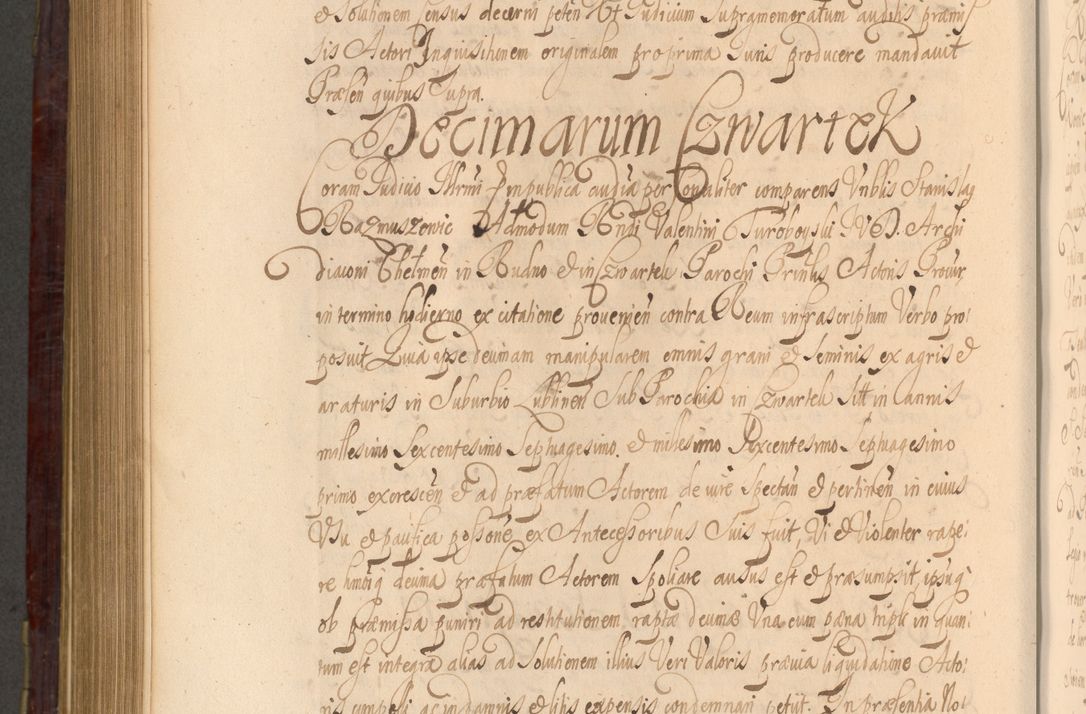 & Solutionem Census decerni peten Et Judicium Supramemoratum auditis præmis
sis Actori Inquisitionem originalem pro prima Juris producere mandavit
Præsen quibus Supra.
Decimarum Czwartek
Coram Judicio Illrmi Dni publica audia personaliter comparens Nblis Stanislaq
Razmuszewic Admodum Rndi Valentini Turoboyski JVD. Archi
diaconi Chelmen in Rudno & in Czwartek Parochi Prinlis Actoris Procur
in termino hodierno ex citatione provenien contra Reum infrascriptum Verbo pro
posuit Quia ipse decimam manipularem omnis grani & Seminis ex agris &
araturis in Suburbio Lublinen Sub Parochia in Czwartek Sitt in annis
millesimo Sexcentesimo Septuagesimo. & millesimo Sexcentesimo Septuagesimo
primo excrescen & ad præfatum Actorem de iure Spectan & pertinen in cuius
Usu & paufica possone ex Antecessoribus Suis fuit, Vi & Violenter rape
re huiusq decima præfatum Actorem Spoliare ausus est & præsumpsit, ipsuq
ob præmissa puniri ad restitutionem raptæ decimæ Una cum pæna tripli in quan
tum est integra alias ad Solutionem illius Veri Valoris prævia liquidatione Acto
ris compelli ac in damnis & litis expensis condemnari petiit. In præsentia No